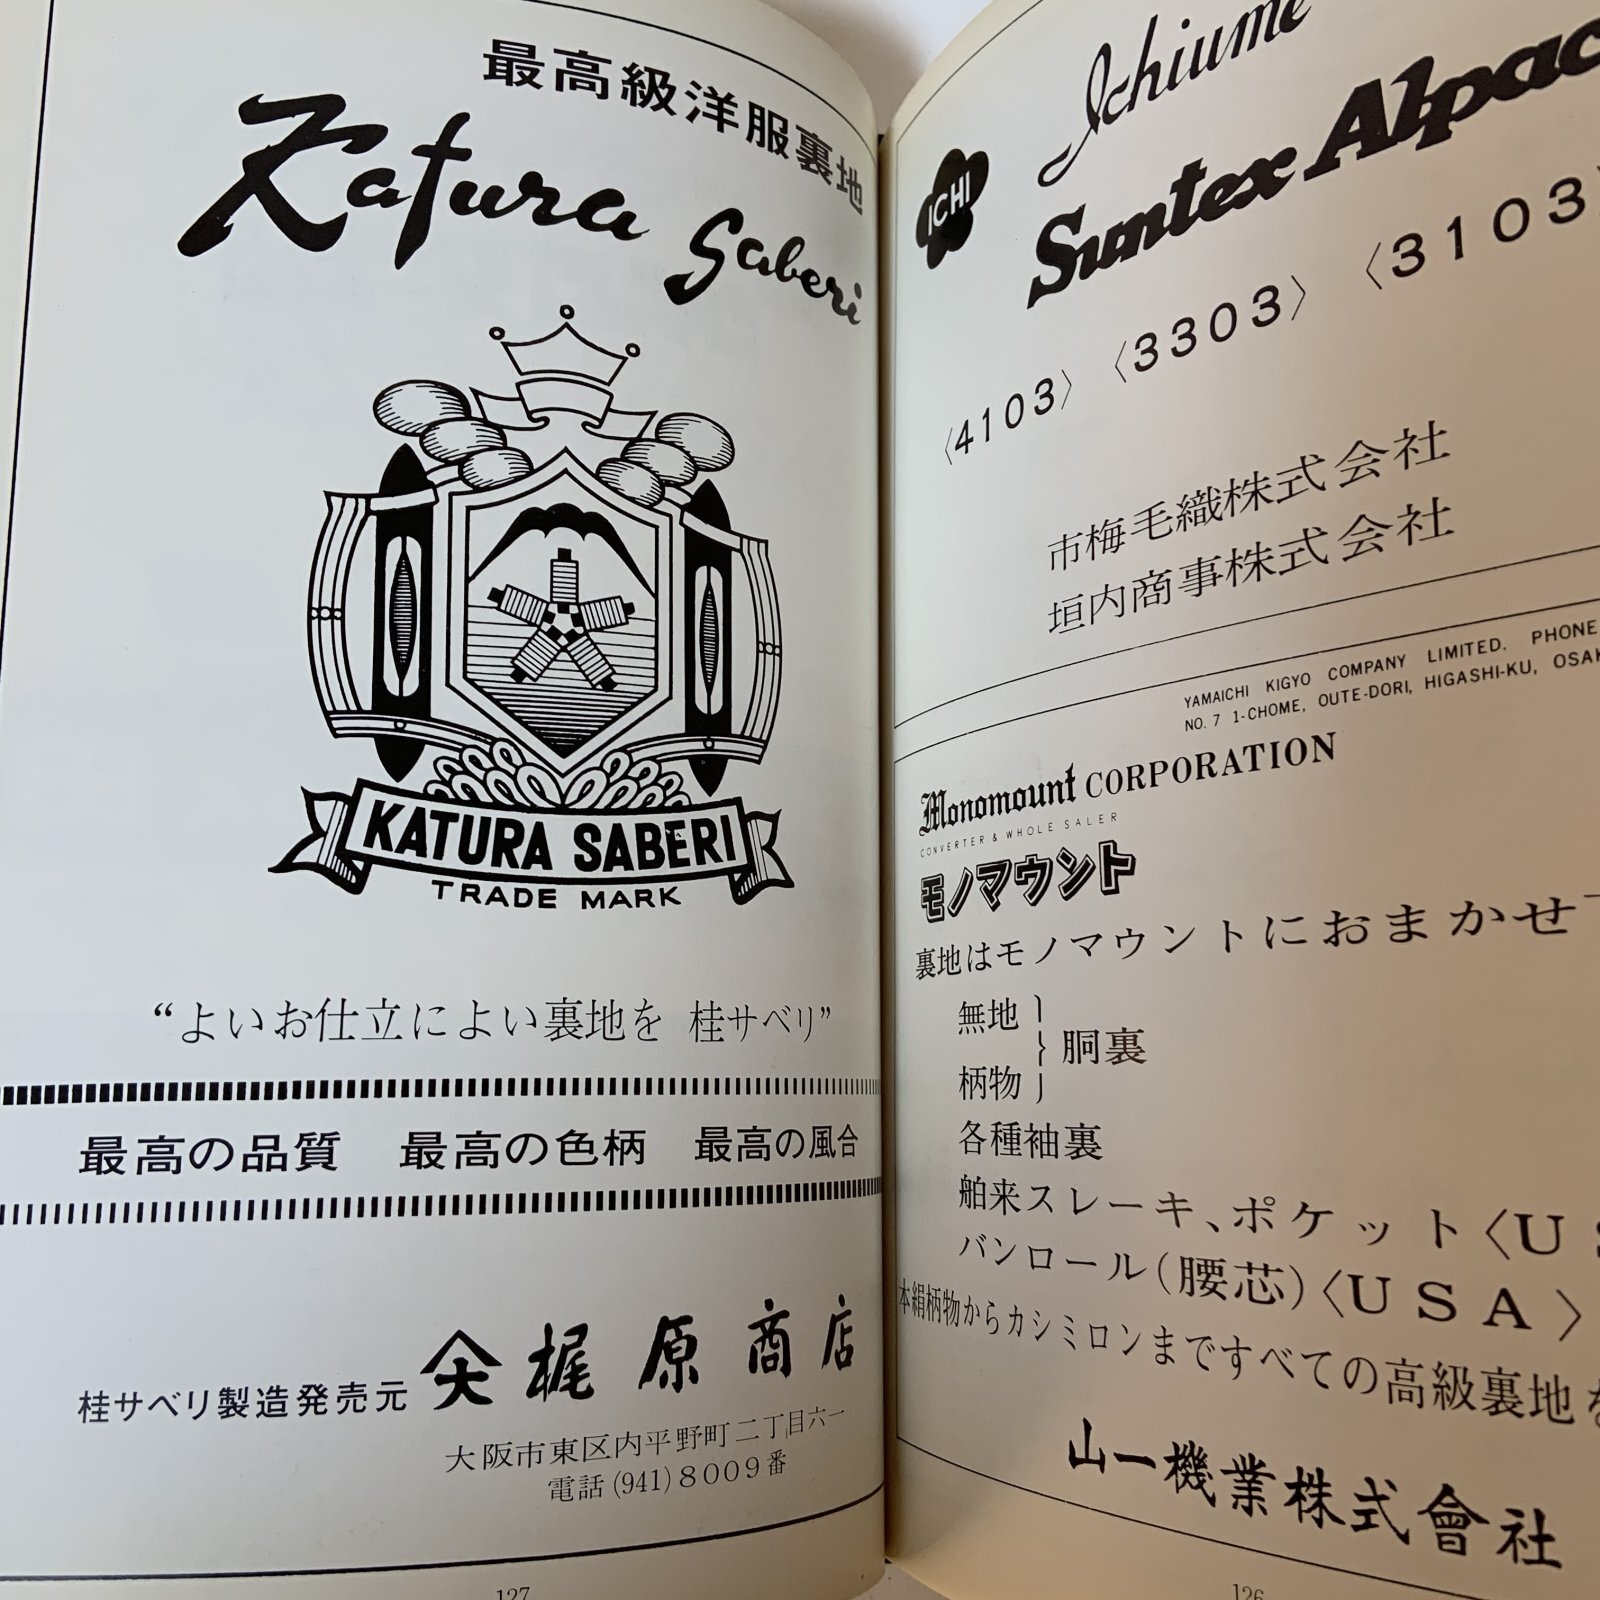 最高級洋服裏地
Katura Saberi
KATURA SABERI
TRADE MARK
“よいお仕立によい裏地を 桂サベリ”
最高の品質 最高の色柄 最高の風合
桂サベリ製造発売元 大 梶原商店
大阪市東区内平野町二丁目六一
電話(941)8009番
127
Ichiume
ICHI
Suntex Alpac
〈4103〉〈3303〉〈3103〉
市梅毛織株式会社
垣内商事株式会社
YAMAICHI KIGYO COMPANY LIMITED. PHONE
NO. 7 1-CHOME, OUTE-DORI, HIGASHI-KU, OSAK
Monomount CORPORATION
CONVERTER & WHOLE SALER
モノマウント
裏地はモノマウントにおまかせ
無地
柄物
胴裏
各種袖裏
舶来スレーキ、ポケット〈US
バンロール(腰芯)〈USA〉
本絹柄物からカシミロンまですべての高級裏地を
山一機業株式會社
126